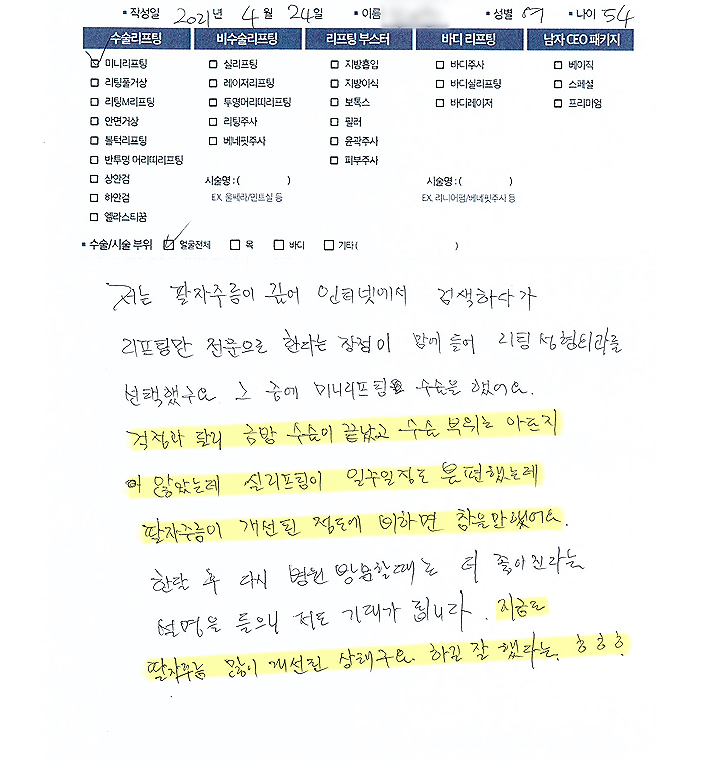 ▪ 작성일 2021년 4월 24일 ▪ 이름 ▪ 성별 여 ▪ 나이 54
수술리프팅 비수술리프팅 리프팅 부스터 바디 리프팅 남자 CEO 패키지
☑ 미니리프팅 □ 실리프팅 □ 지방흡입 □ 바디주사 □ 베이직
□ 리팅풀거상 □ 레이저리프팅 □ 지방이식 □ 바디실리프팅 □ 스페셜
□ 리팅M리프팅 □ 투명머리띠리프팅 □ 보톡스 □ 바디레이저 □ 프리미엄
□ 안면거상 □ 리팅주사 □ 필러
□ 볼턱리프팅 □ 베네핏주사 □ 윤곽주사
□ 반투명 머리띠리프팅 □ 피부주사
□ 상안검 시술명 : ( ) 시술명 : ( )
□ 하안검 EX. 울쎄라/민트실 등 EX. 리니어펌/베네핏주사 등
□ 엘라스티꿈
▪ 수술/시술 부위 ☑ 얼굴전체 □ 목 □ 바디 □ 기타 ( )
저는 팔자주름이 깊어 인터넷에서 검색하다가
리프팅만 전문으로 한다는 장점이 맘에 들어 리팅성형외과를
선택했구요 그 중에 미니리프팅 수술을 했어요.
걱정과 달리 금방 수술이 끝났고 수술 부위는 아프지
않았는데 실리프팅이 일주일정도 불편했는데
팔자주름이 개선된 정도에 비하면 참을만했어요.
한달 후 다시 병원 방문할때는 더 좋아진다는
설명을 들으니 저도 기대가 됩니다. 지금도
팔자주름 많이 개선된 상태구요. 하길 잘 했다는. ㅎㅎㅎ.